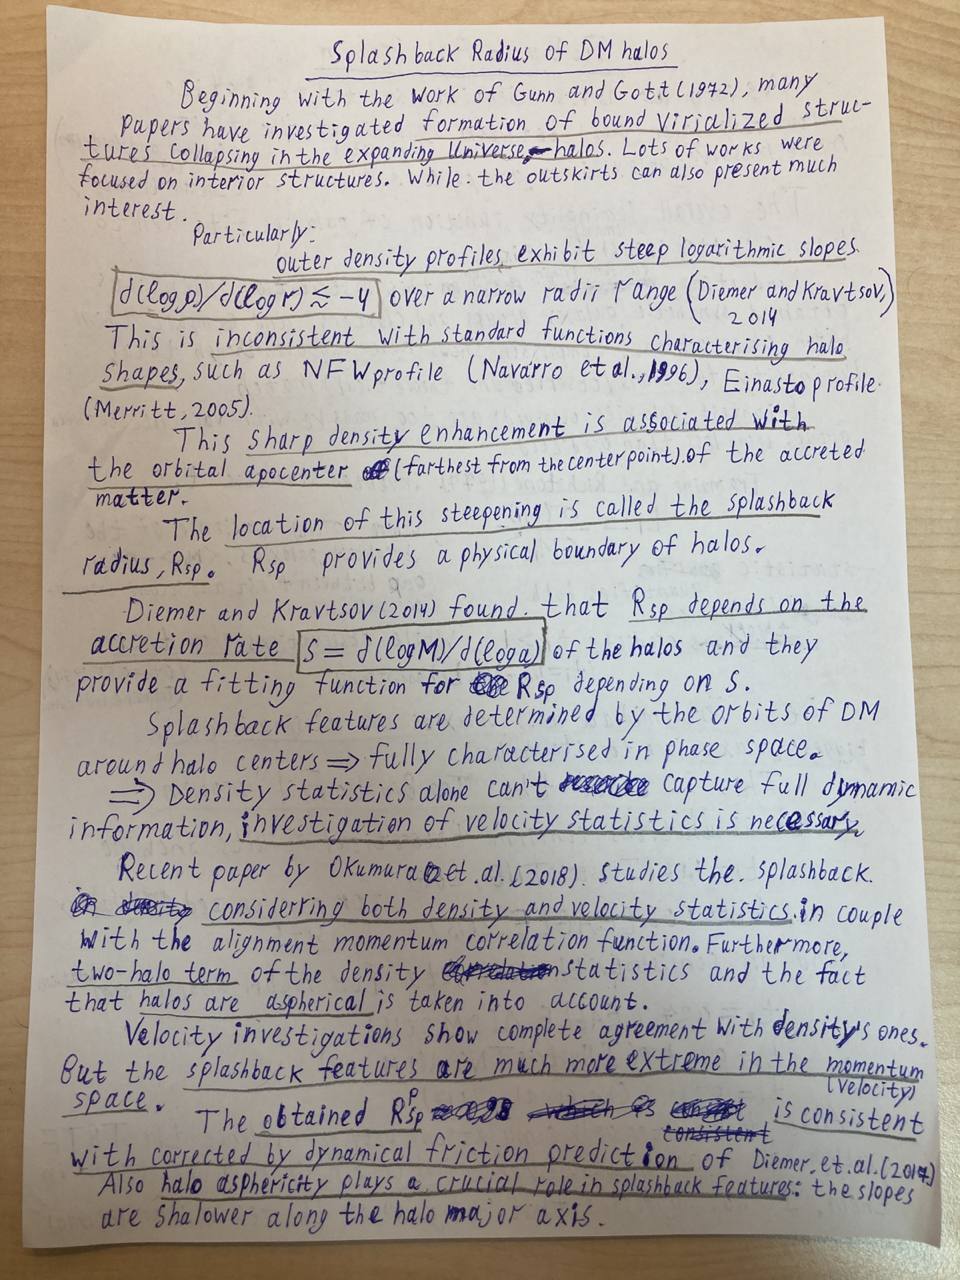 Splashback Radius of DM halos
Beginning with the work of Gunn and Gott (1972), many
papers have investigated formation of bound virialized struc-
tures collapsing in the expanding Universe, - halos. Lots of works were
focused on interior structures. While the outskirts can also present much
interest.
Particularly:
outer density profiles exhibit steep logarithmic slopes
d(logρ)/d(logr) ≲ -4 over a narrow radii range (Diemer and Kravtsov,
2014)
This is inconsistent with standard functions characterising halo
shapes, such as NFW profile (Navarro et al., 1996), Einasto profile
(Merritt, 2005).
This sharp density enhancement is associated with
the orbital apocenter (farthest from the center point) of the accreted
matter.
The location of this steepening is called the splashback
radius, Rsp. Rsp provides a physical boundary of halos.
Diemer and Kravtsov (2014) found that Rsp depends on the
accretion rate S = d(logM)/d(loga) of the halos and they
provide a fitting function for Rsp depending on S.
Splashback features are determined by the orbits of DM
around halo centers ⇒ fully characterised in phase space.
⇒ Density statistics alone can't capture full dynamic
information, investigation of velocity statistics is necessary.
Recent paper by Okumura et.al. (2018) studies the splashback
considerring both density and velocity statistics in couple
with the alignment momentum correlation function. Furthermore,
two-halo term of the density statistics and the fact
that halos are aspherical is taken into account.
Velocity investigations show complete agreement with density's ones.
But the splashback features are much more extreme in the momentum
(velocity)
space.
The obtained Rsp^p is consistent
with corrected by dynamical friction prediction of Diemer et.al. (2017)
Also halo asphericity plays a crucial role in splashback features: the slopes
are shalower along the halo major axis.